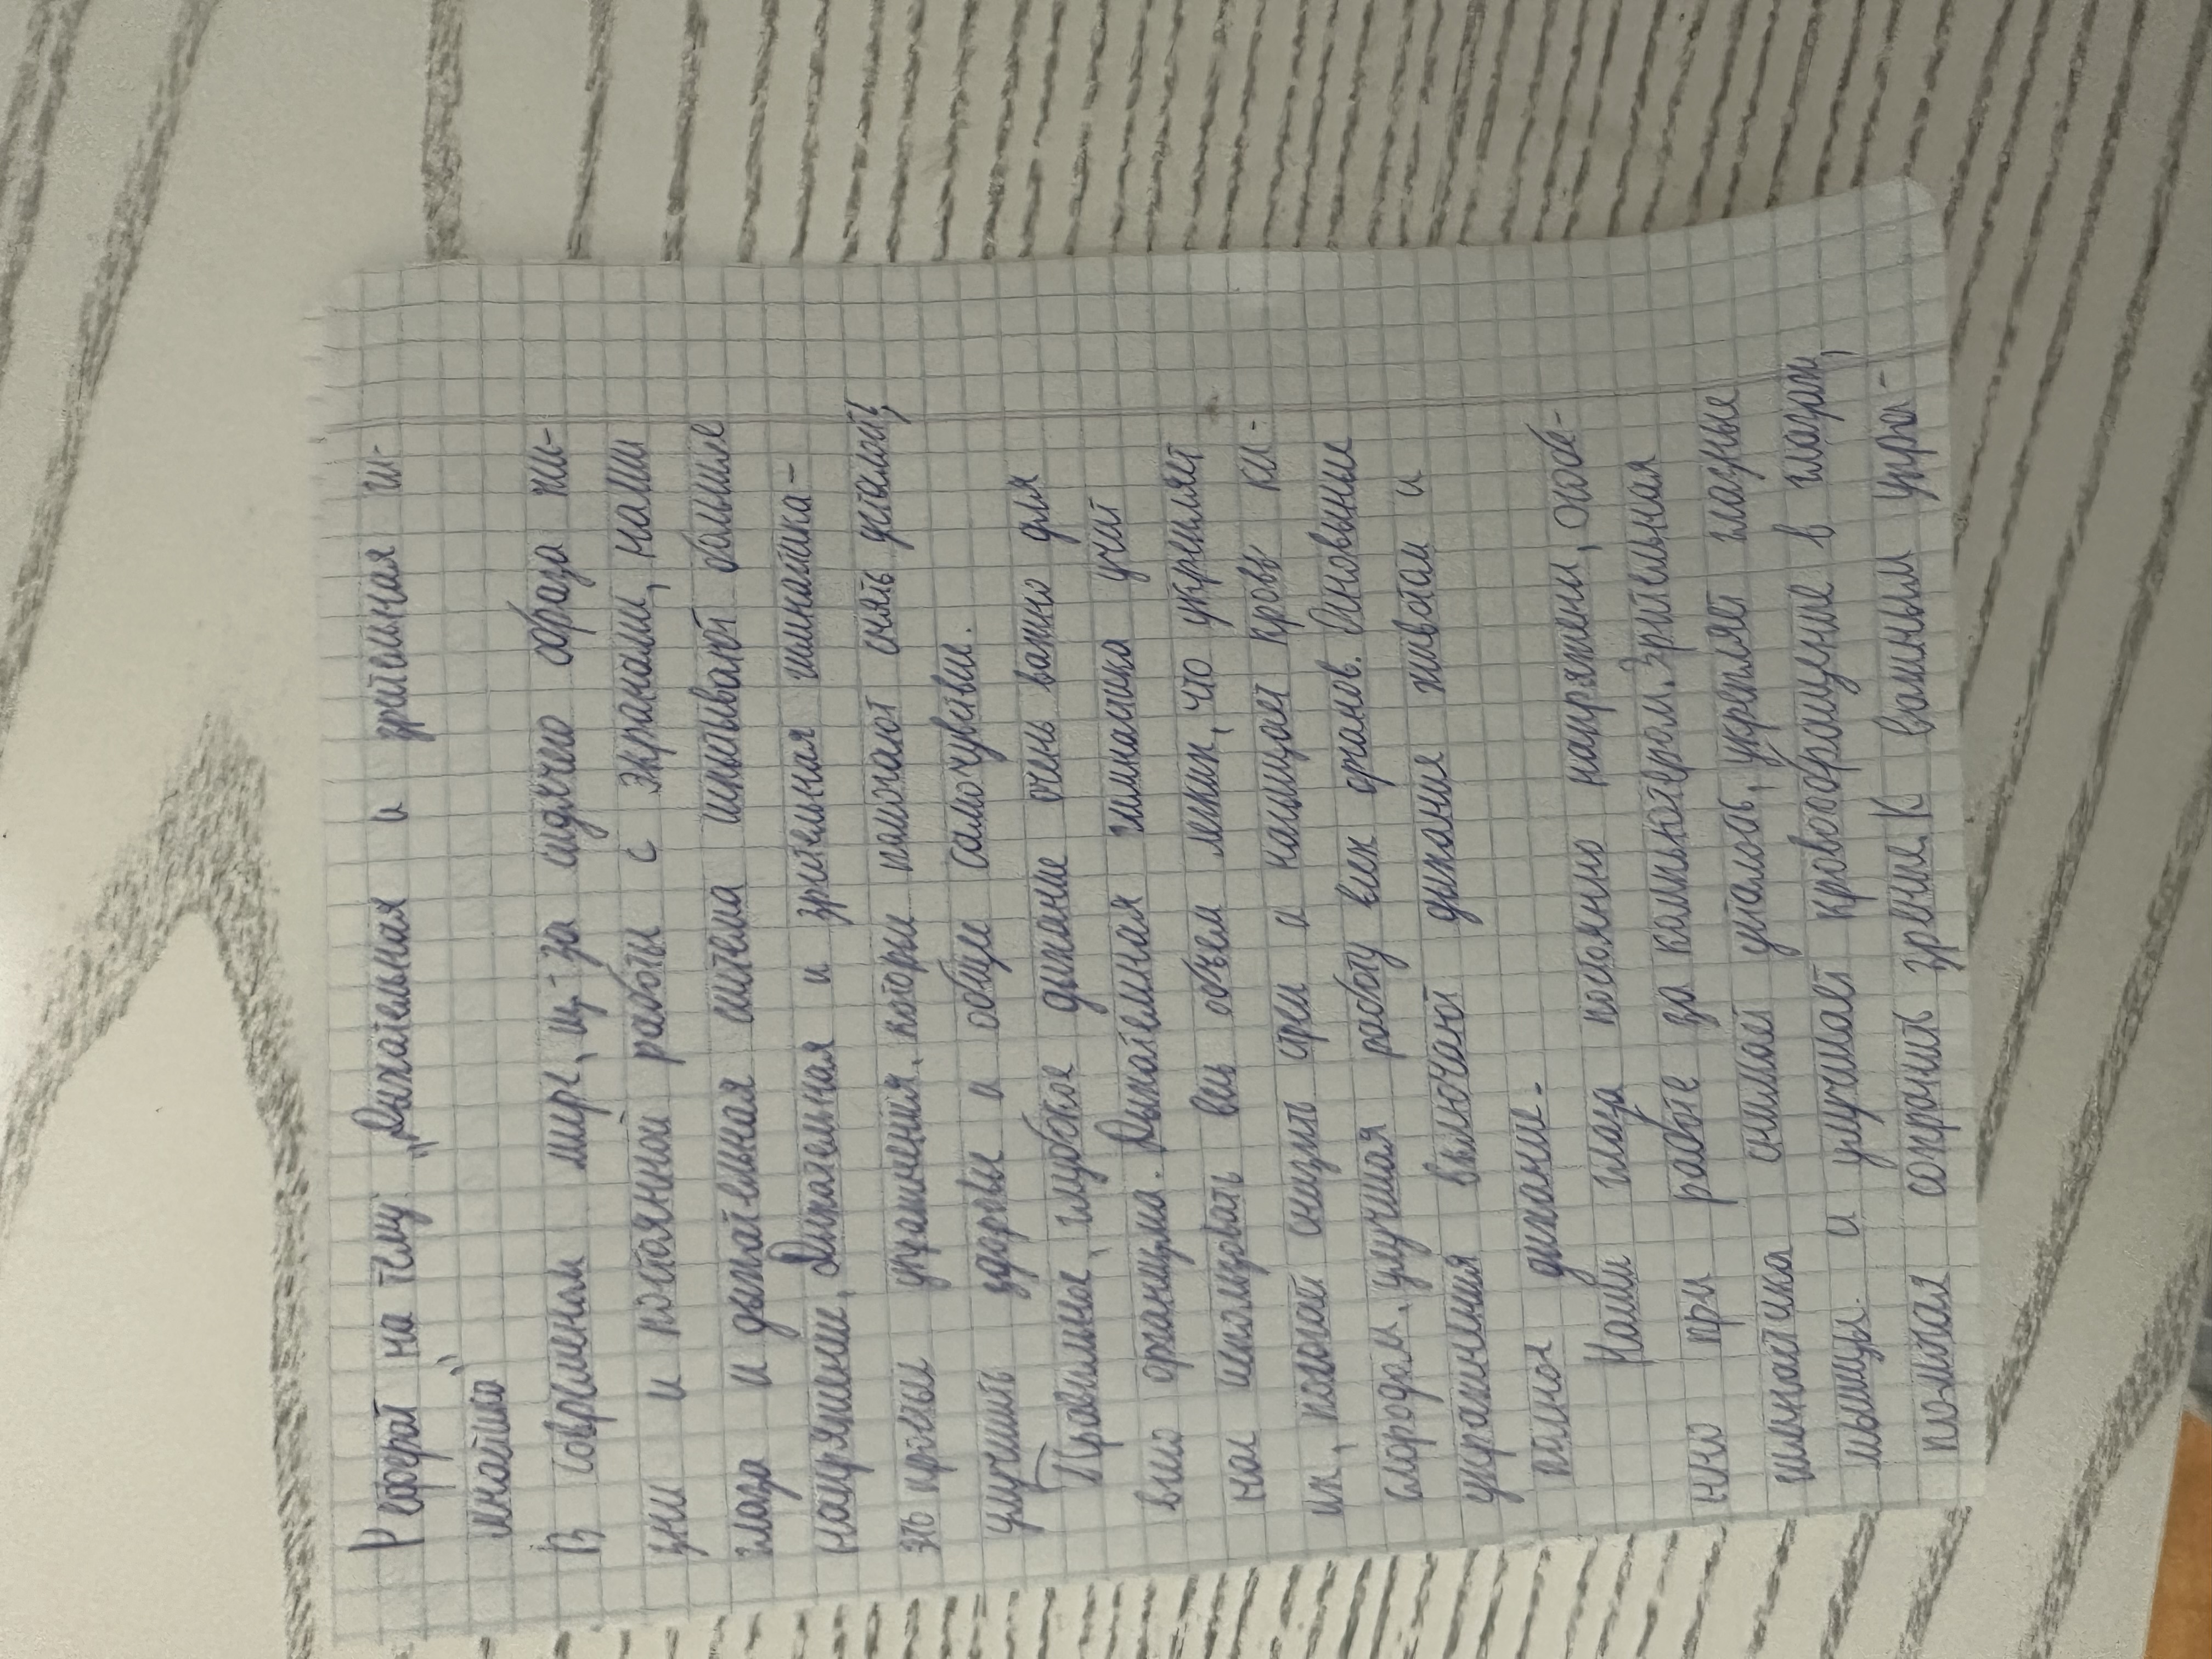 Реферат на тему „Дыхательная и зрительная ги-
мнастика"
В современном мире, из-за сидячего образа жи-
зни и постоянной работы с экранами, наши
глаза и дыхательная система испытывают большие
напряжение. Дыхательная и зрительная гимнастика-
это простые упражнения, которые помогают снять усталость,
улучшить здоровье и общее самочувствие.
Правильное, глубокое дыхание очень важно для
всего организма. Дыхательная гимнастика учит
нас использовать весь объем легких, что укрепляет
их, помогает снизить стресс и насыщает кровь ки-
слородом, улучшая работу всех органов. Основные
упражнения включают дыхания животом и
полное дыхание.
Наши глаза постоянно напряжены, особе-
нно при работе за компьютером. Зрительная
гимнастика снимает усталость, укрепляет глазные
мышцы и улучшает кровообращение в глазах,
помогая сохранить зрение. К важным упра-